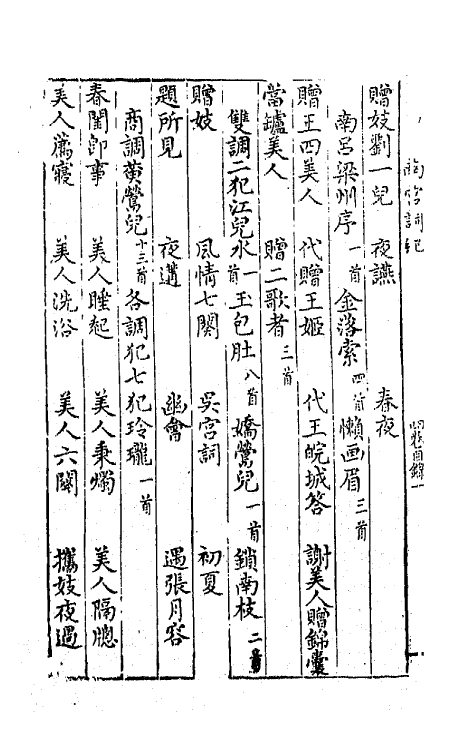 贈妓劉一兒　夜讌　春夜
南呂梁州序一首　金落索四首　懶画眉三首
贈王四美人　代贈王姬　代王皖城答　謝美人贈錦囊
當罏美人　贈二歌者三首
雙調二犯江兒水一首　玉包肚八首　嬌鶯兒一首　鎖南枝二首
贈妓　風情七闋　吳宮詞　初夏
題所見　夜遘　幽會　遇張月容
商調黄鶯兒十三首　各調犯七犯玲瓏一首
春閨即事　美人睡起　美人秉燭　美人隔牕
美人薦寢　美人洗浴　美人六闋　攜妓夜遇